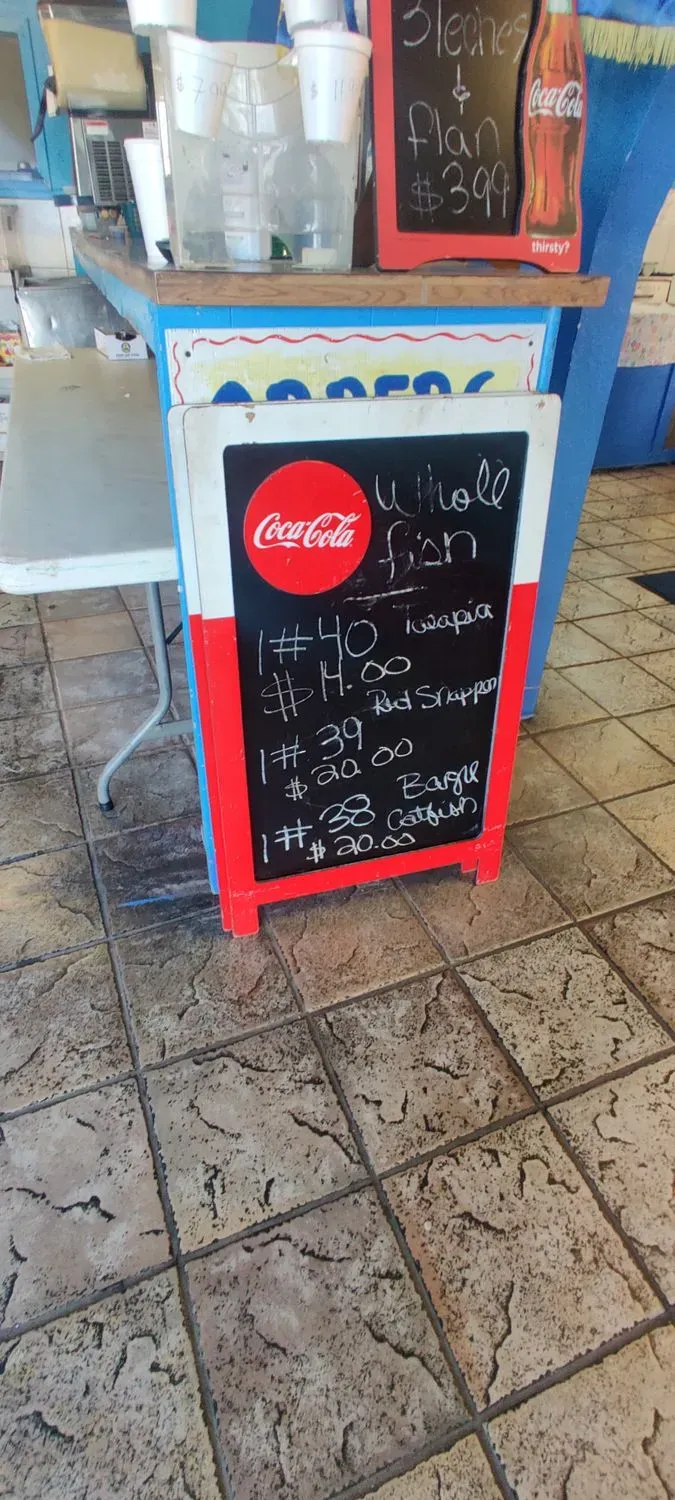 3 leches
&
flan
$3.99
Coca-Cola
thirsty?
ORDERS
Coca-Cola
Whole
fish
1#40 Tilapia
$14.00
Red Snapper
1#39
$20.00
1#38 Catfish
$20.00